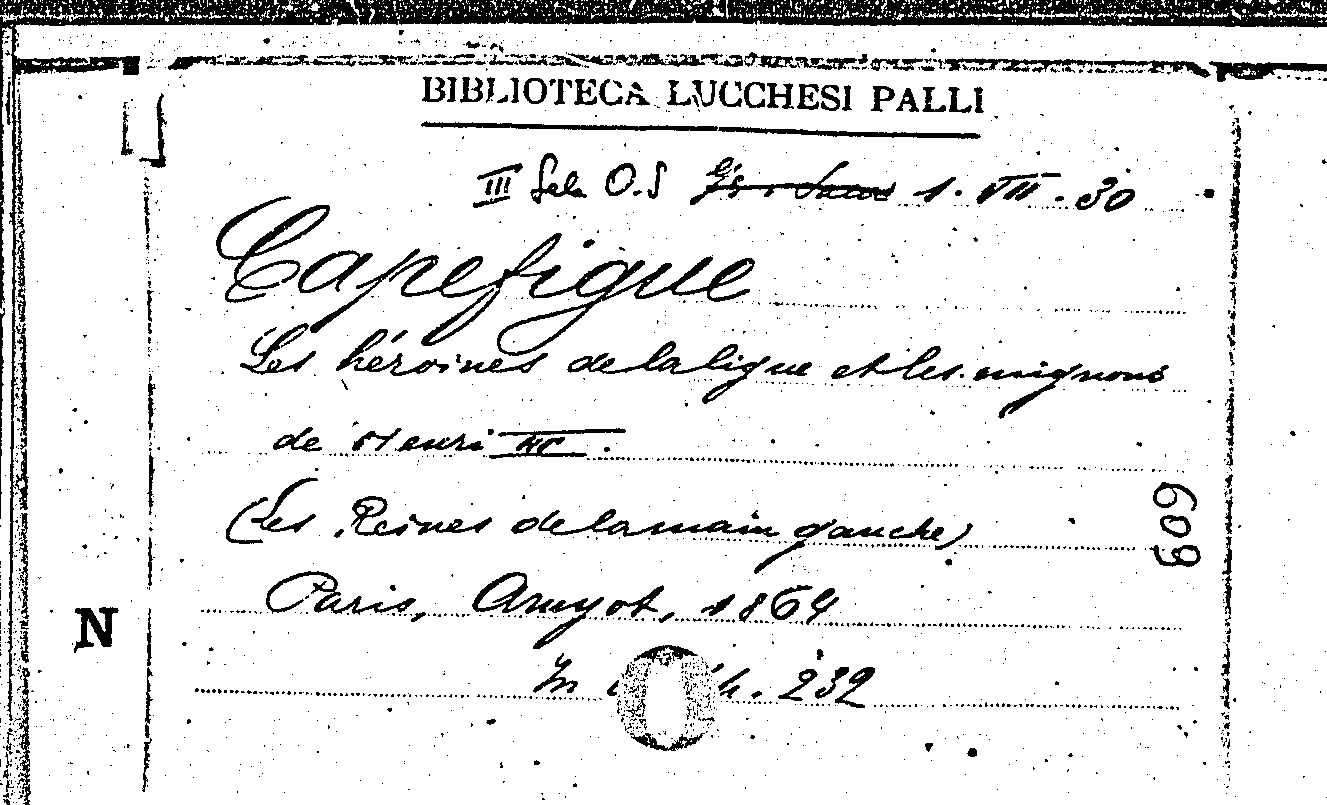 BIBLIOTECA LUCCHESI PALLI
III Sala O.S 1. VII. 30
Capefigue
Les héroines de la ligue et les mignons
de Henri III.
(Les Reines de la main gauche)
Paris, Amyot, 1864
In 232
609
N